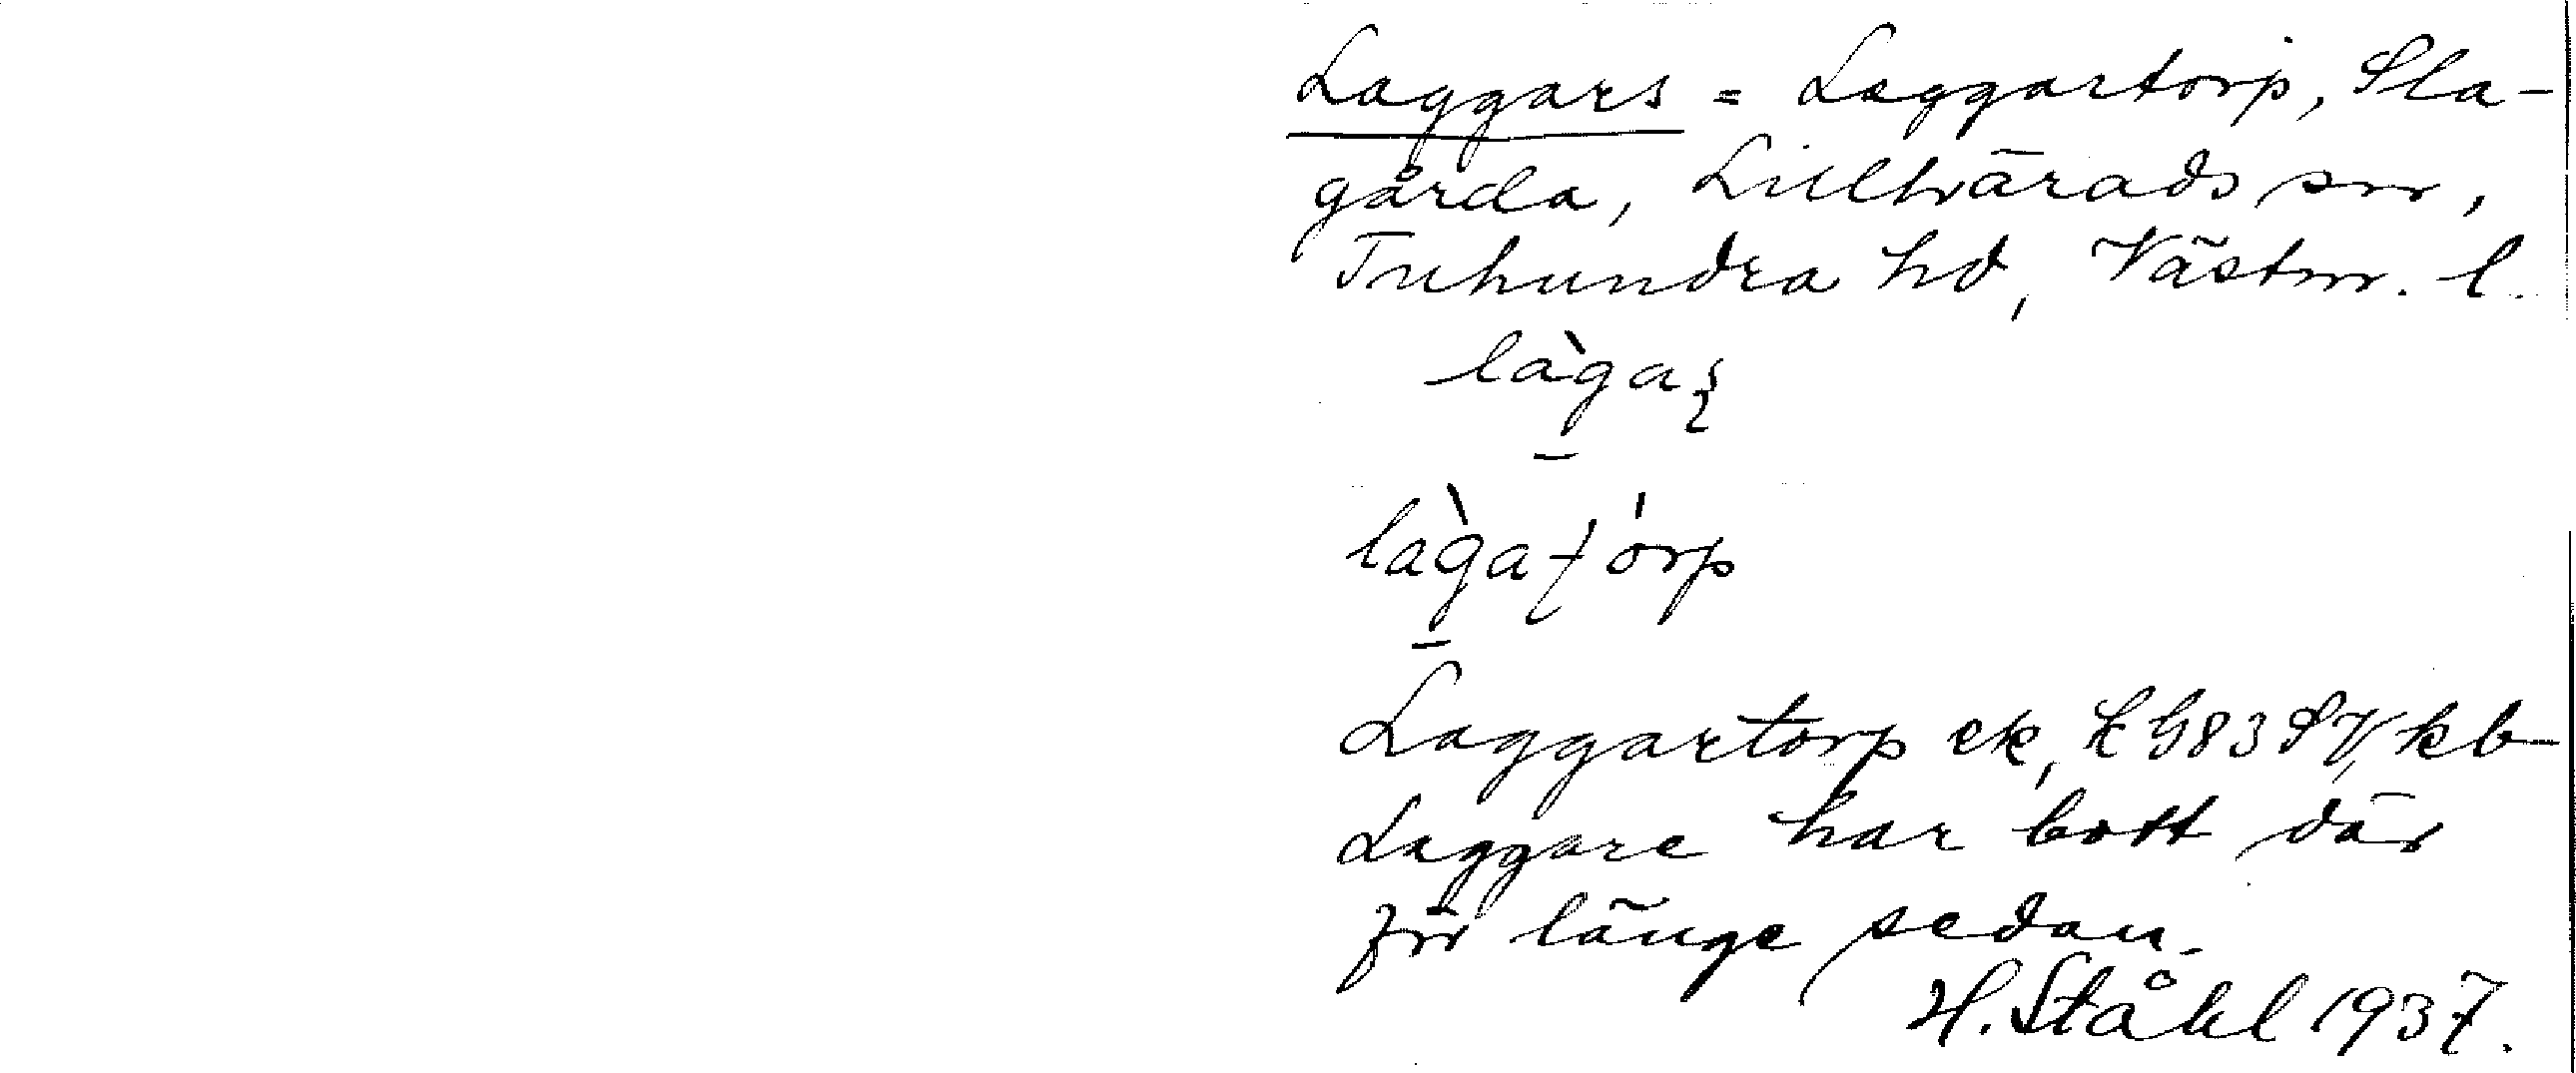 Laggars = Laggartorp, Sla-
gårda, Lillhärads sn,
Tuhundra hd, Västm. l.
làga
làga órp
Laggartorp ek, kb
Laggare har bott där
för länge sedan.
H. Ståhl 1937.